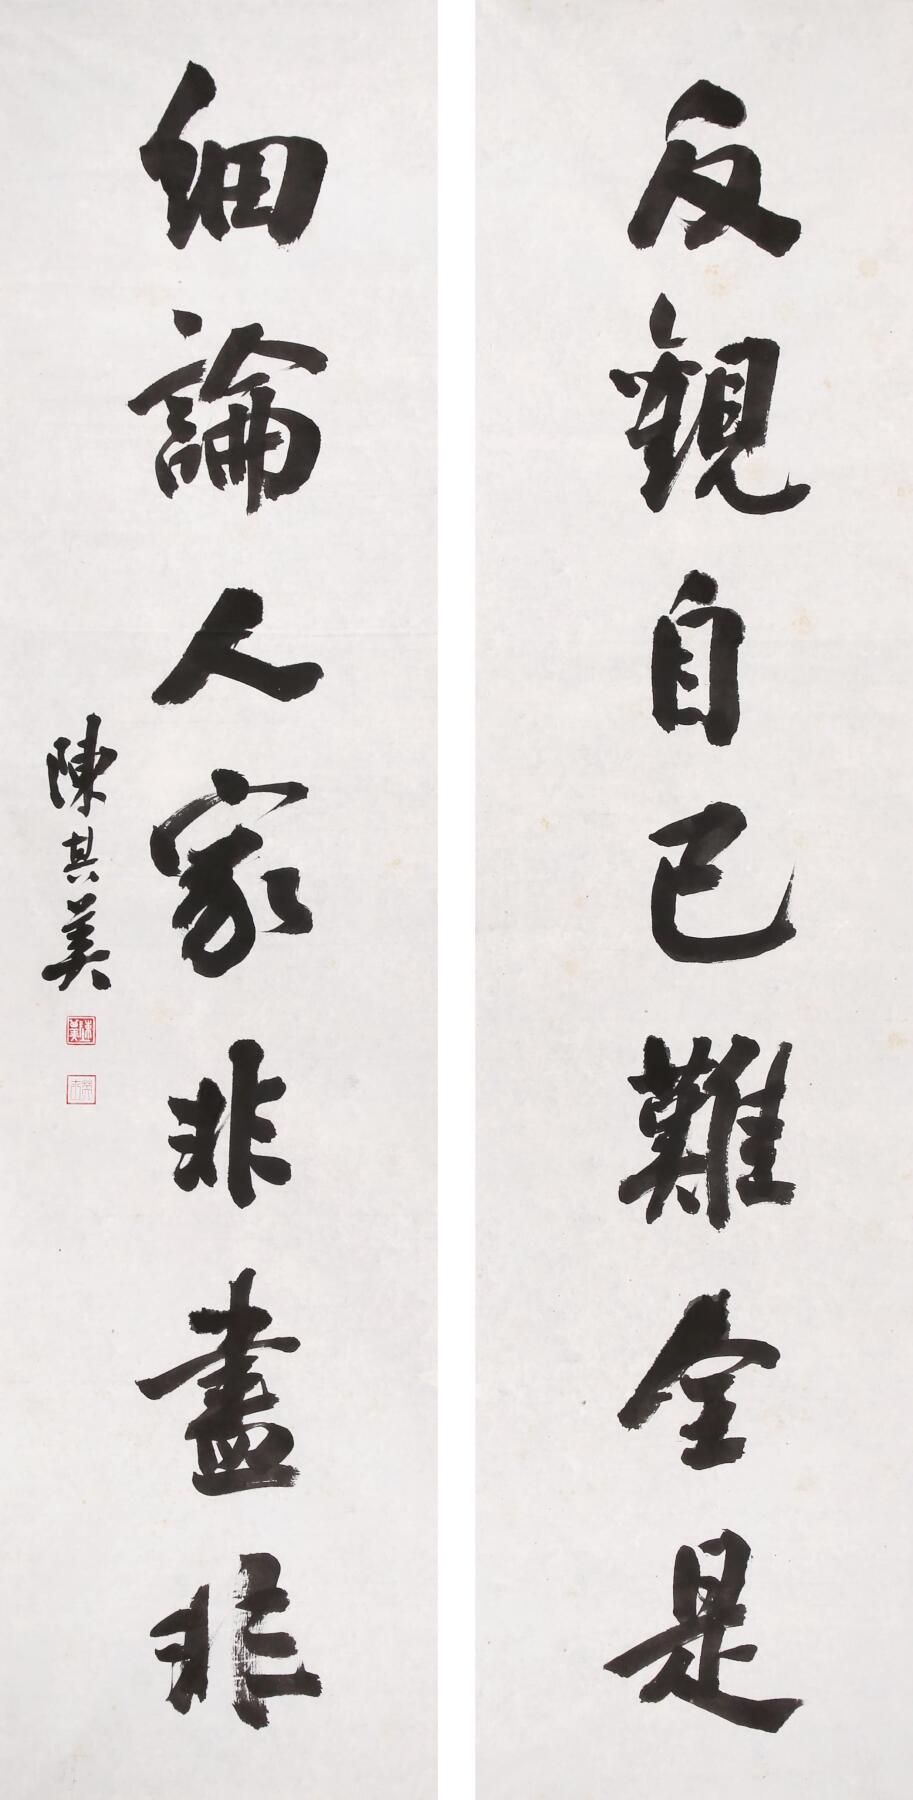 反觀自己難全是
細論人家非盡非
陳其美